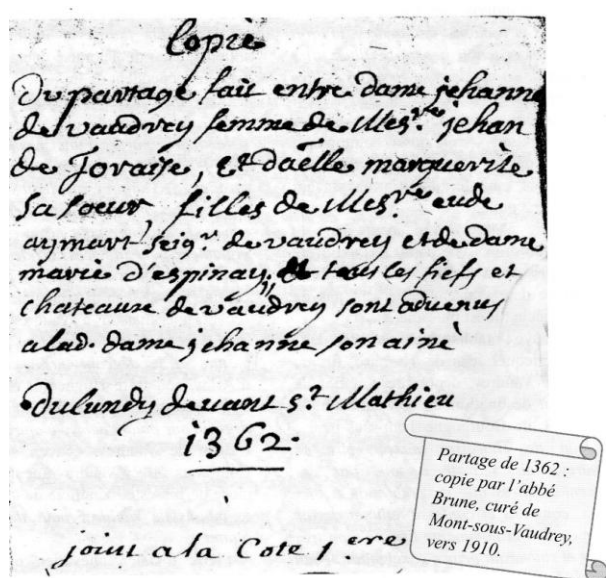 Copie
Du partage fait entre dame jehanne
de vaudrey femme de Mes.re jehan
de Joraise, Et daelle marguerite
sa soeur, filles de Mes.re eude
aymart seig.r de vaudrey et de dame
marie d'espinay, tous les fiefs et
chateaux de vaudrey sont advenus
a lad. dame jehanne son ainé
Du lundy devant St. Mathieu
1362.
joint a la Cote 1.ere
Partage de 1362 :
copie par l'abbé
Brune, curé de
Mont-sous-Vaudrey,
vers 1910.